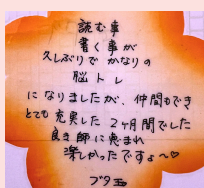 読む事
書く事が
久しぶりでかなりの
脳トレ
になりましたが、仲間もでき
とても充実した2ヶ月間でした
良き師に恵まれ
楽しかったですょ〜♡
ブタ玉